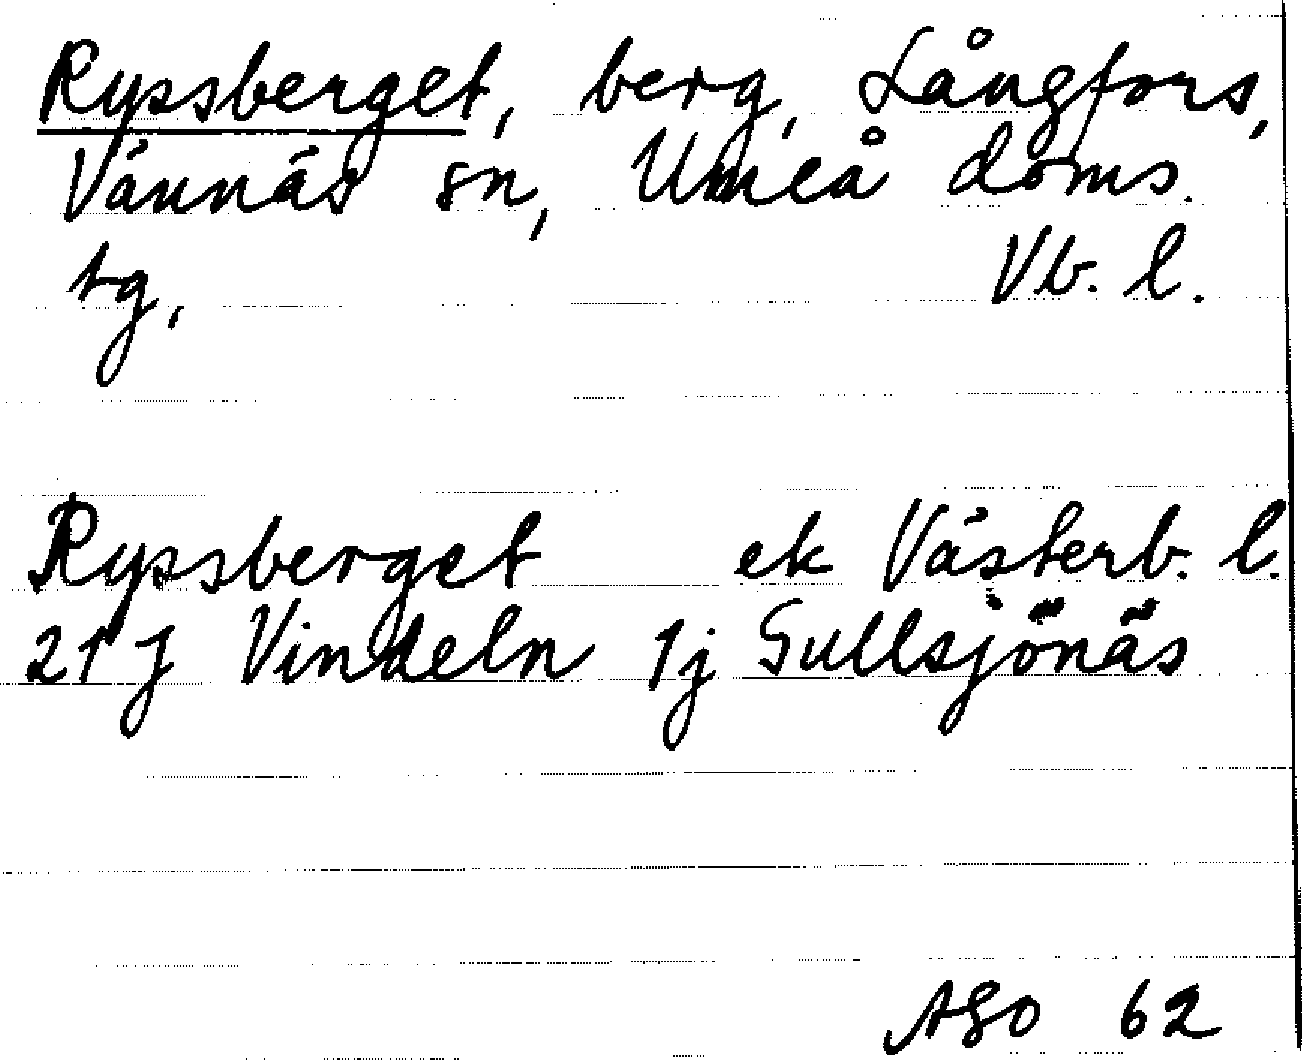 Ryssberget, berg, Långfors,
Vännäs sn, Umeå doms.
tg, Vb. l.
Ryssberget ek Västerb. l.
21 J Vindeln 1j Gullsjönäs
AGO 62